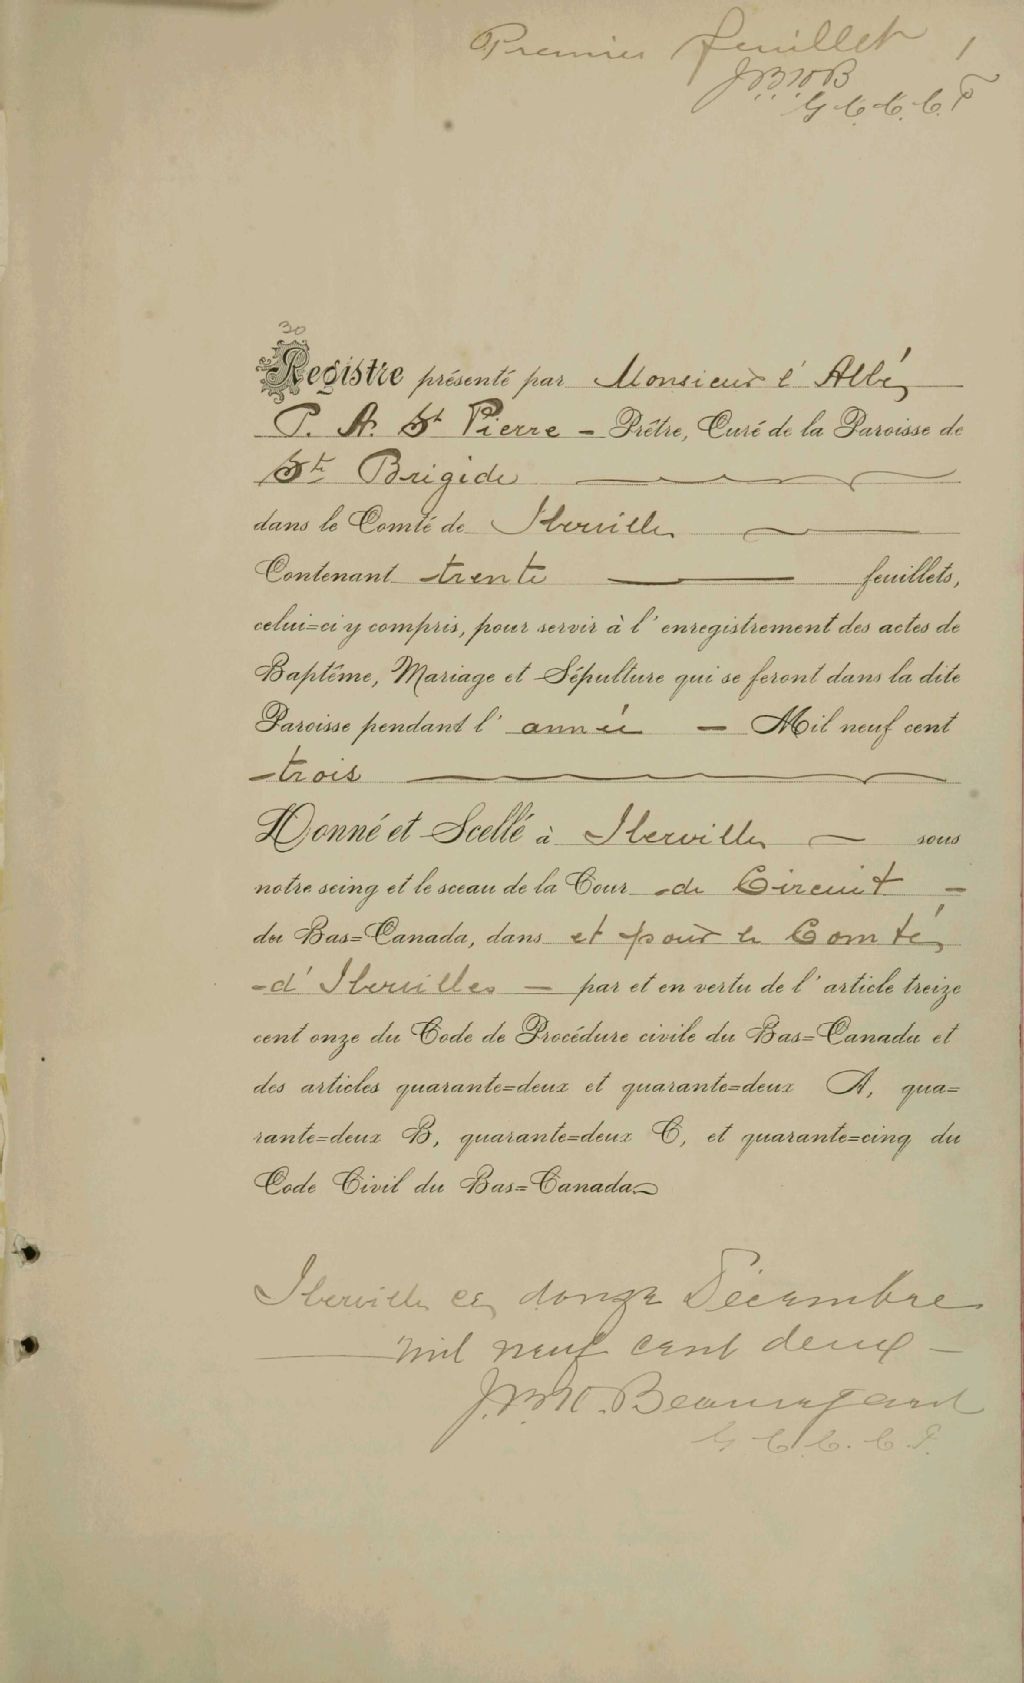 Premier feuillet 1
J.B.N.B
G.C.C.C.I
30
Registre présenté par Monsieur l'Abbé
P. A. St Pierre – Prêtre, Curé de la Paroisse de
Ste Brigide
dans le Comté de Iberville
Contenant trente feuillets,
celui=ci y compris, pour servir à l'enregistrement des actes de
Baptême, Mariage et Sépulture qui se feront dans la dite
Paroisse pendant l'année – Mil neuf cent
trois
Donné et Scellé à Iberville – sous
notre seing et le sceau de la Cour de Circuit –
du Bas=Canada, dans et pour le Comté
d'Iberville – par et en vertu de l'article treize
cent onze du Code de Procédure civile du Bas=Canada et
des articles quarante=deux et quarante=deux A, qua=
rante=deux B, quarante=deux C, et quarante=cinq du
Code Civil du Bas=Canada.
Iberville ce douze Décembre
mil neuf cent deux –
J.B.N. Beauregard
G.C.C.C.I.